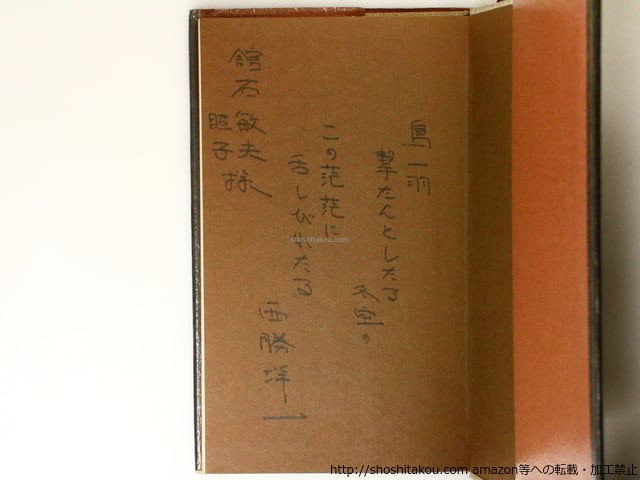 鳥一羽
撃たんとしたる
冬空の
この茫茫に
舌しびれたる
西勝洋一
舘石敏夫様
照子
shoshitakou.com
http://shoshitakou.com amazon等への転載・加工禁止